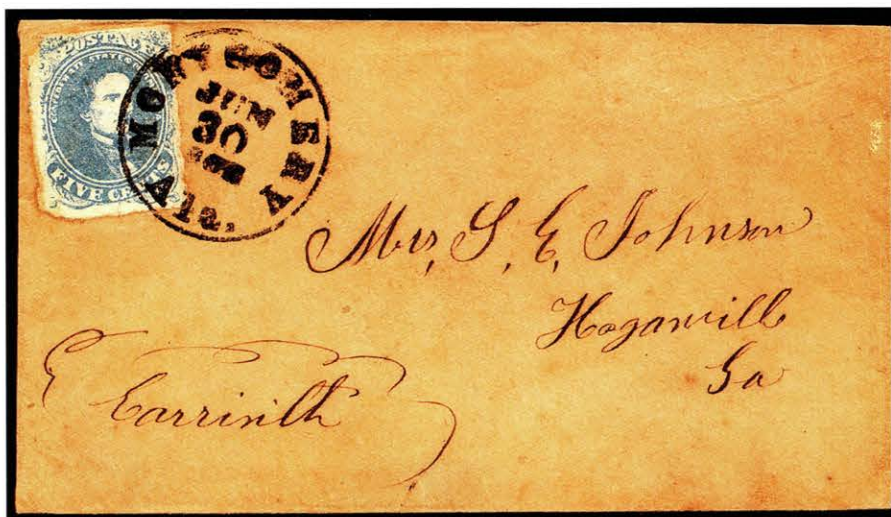 POSTAGE
CONFEDERATE STATES
FIVE CENTS
MONTGOMERY Ala.
JUN
30
Mrs, S, E, Johnson
Hoganvill
Ga